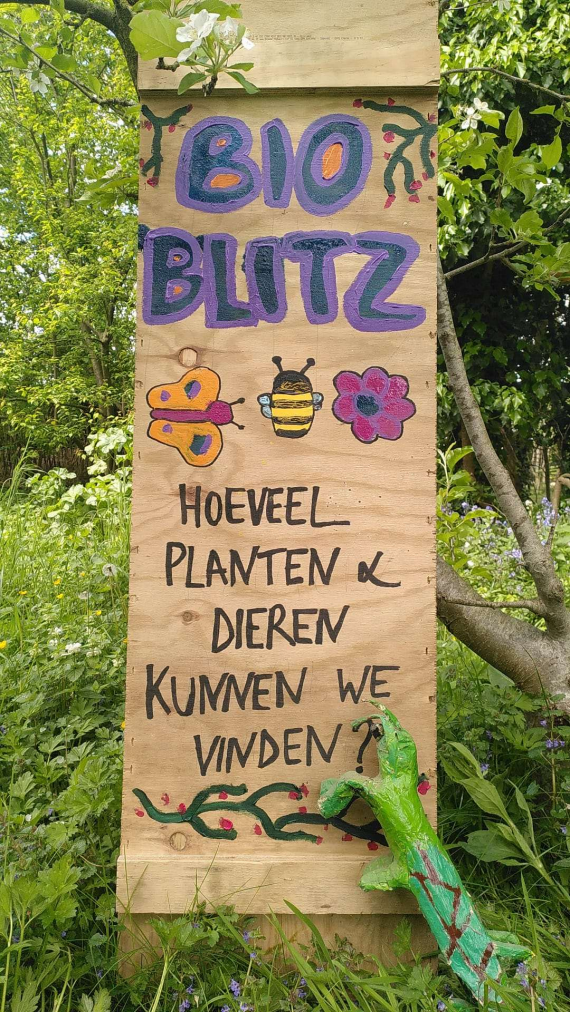 BIO
BLITZ
HOEVEEL
PLANTEN &
DIEREN
KUNNEN WE
VINDEN?